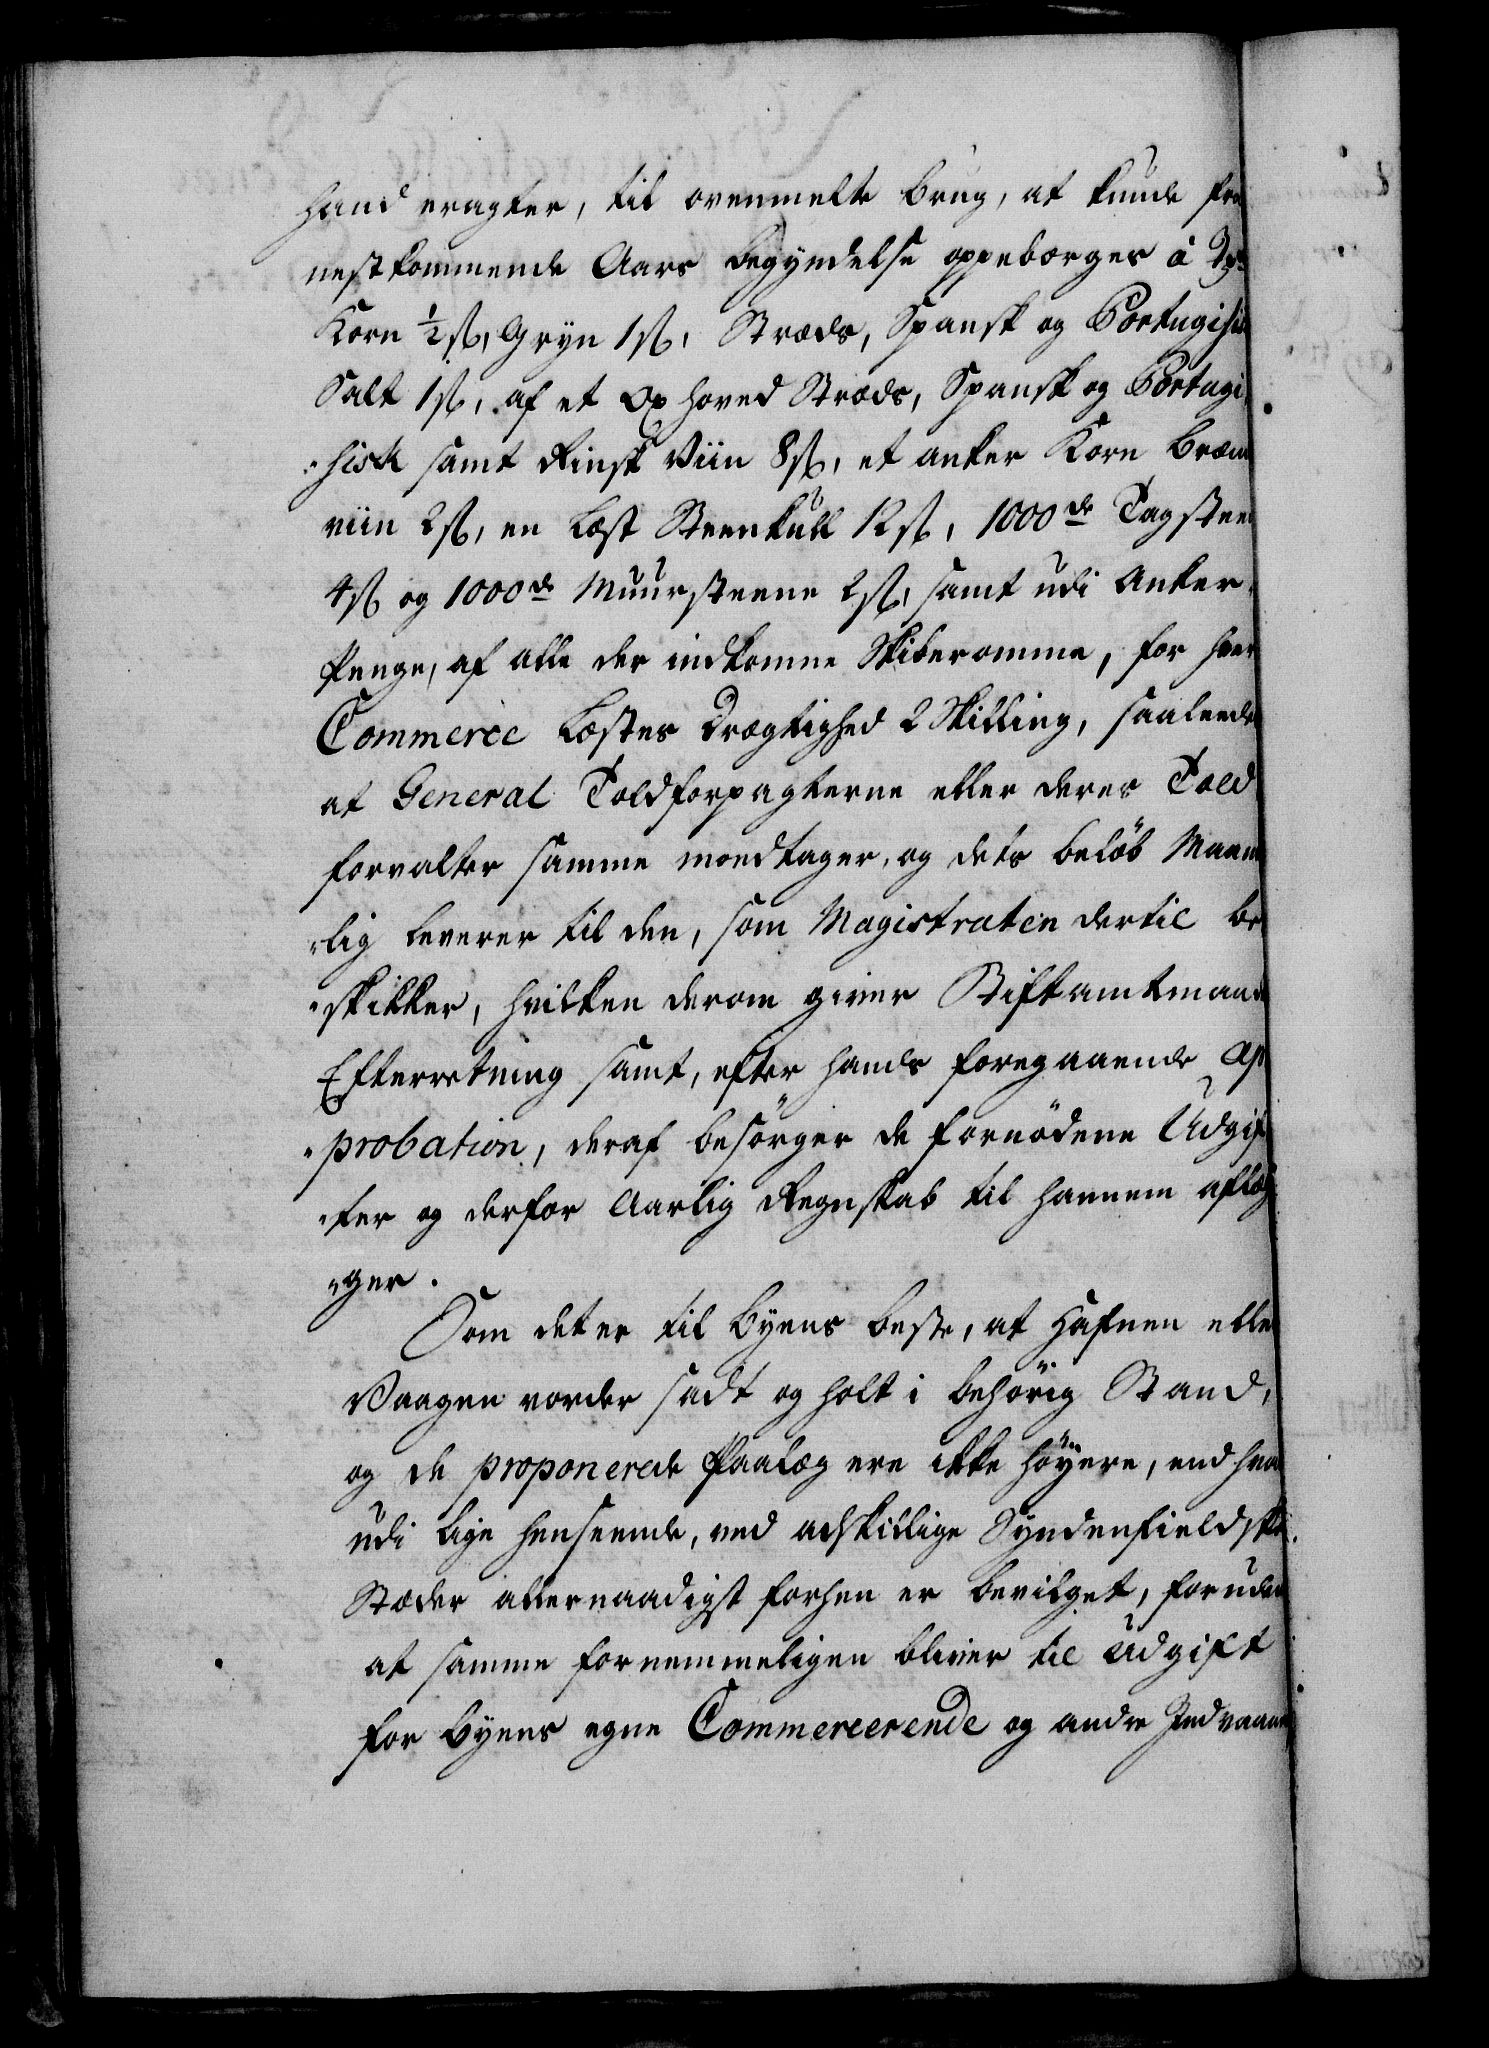 hand eragter, til ovenmelte brug, at kunde fra
nestkommende Aars begyndelse oppebærges à Tde
Korn ½ s, Gryn 1 s, Stræds, Spansk og Portugisisk
Salt 1 s, af et Oxhoved Stræds, Spansk og Portugi
sisk samt Rinsk Viin 8 s, et anker Korn Bræn
viin 2 s, en Læst Steenkull 12 s, 1000de Tagsteen
4 s og 1000de Muursteene 2 s, samt udi Anker
Penge, af alle der indkomne Skiberomme, for hver
Commerce Læstes Drægtighed 2 Skilling, saaleedes
at General Toldforpagterne eller deres Told
forvalter samme modtager, og dets beløb Maane
lig leverer til den, som Magistraten dertil be
skikker, hvilken derom giver Stiftamtmanden
Efterretning samt, efter hands foregaaende Ap
probation, deraf besørger de fornødene Udgif
ter og derfor Aarlig Regnskab til hannem aflæg
ger.
Som det er til Byens beste, at Hafnen eller
Vaagen vorder sadt og holt i behørig Stand,
og de proponerede Paalæg ere ikke høyere, end hvad
udi lige henseende, ved adskillige Syndenfieldske
Stæder allernaadigst forhen er bevilget, foruden
at samme fornemmeligen bliver til Udgift
for Byens egne Commercerende og andre Indvaane